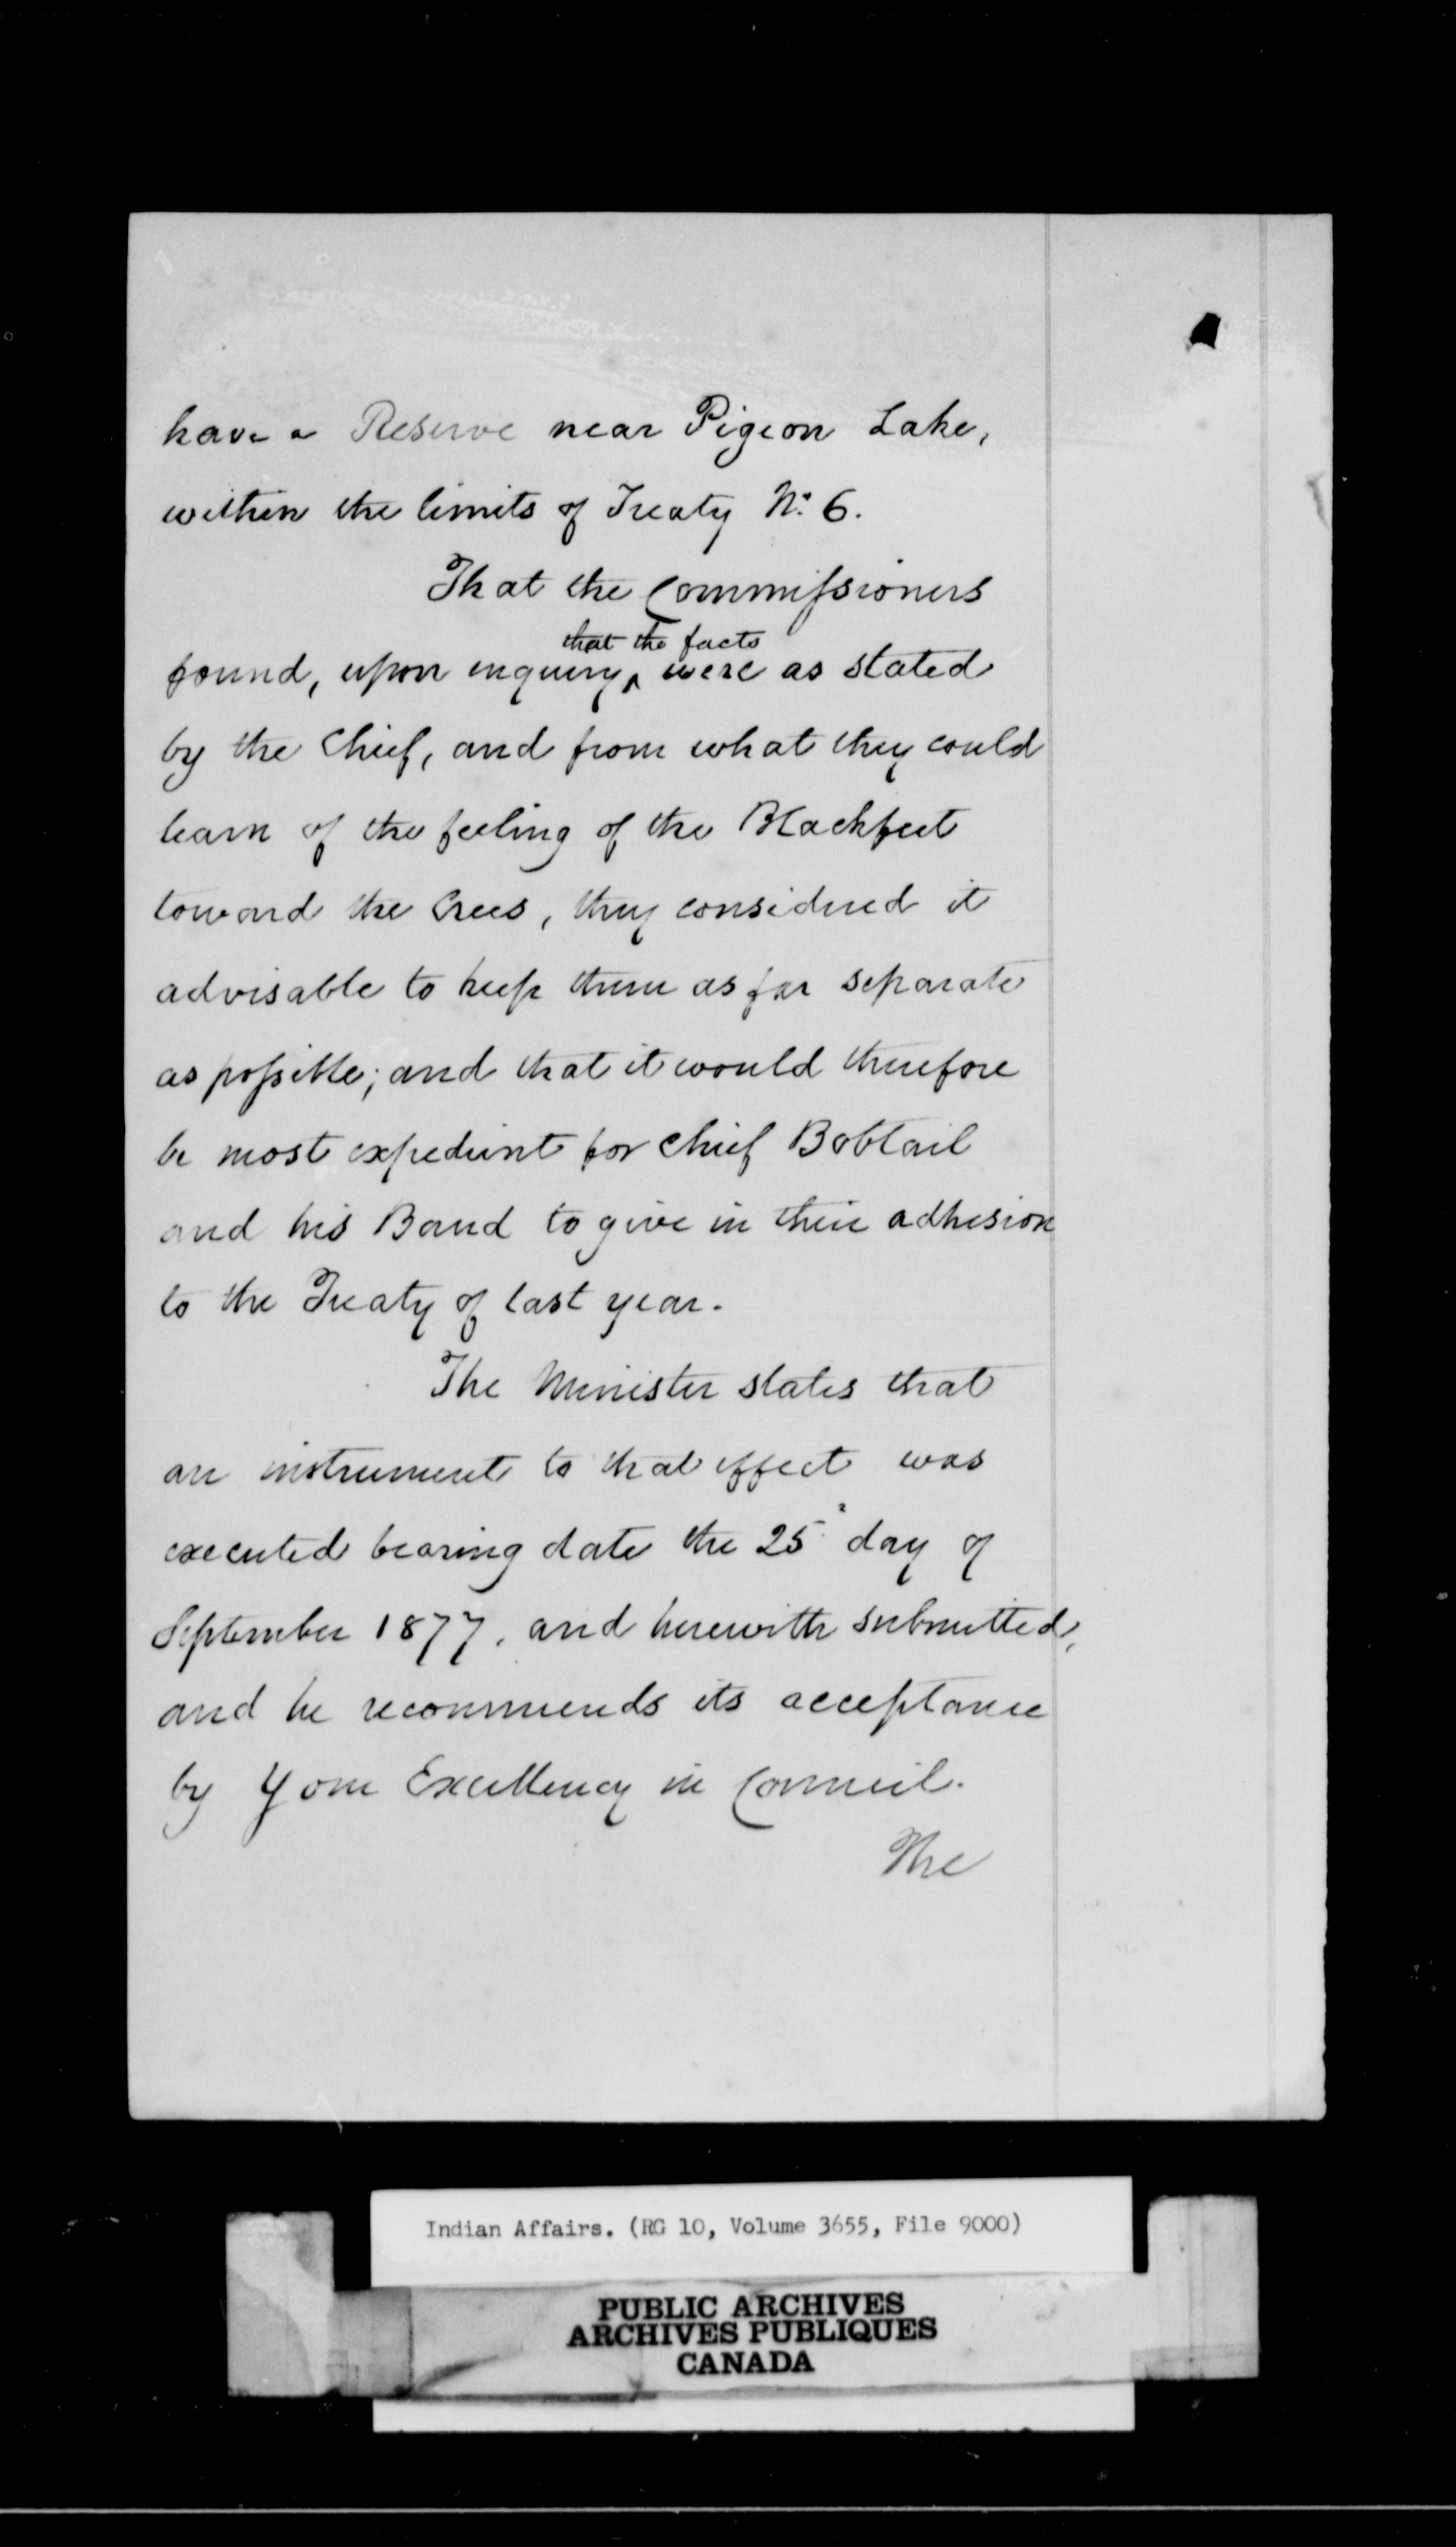 have a Reserve near Pigeon Lake,
within the limits of Treaty No. 6.
That the Commissioners
that the facts
found, upon inquiry, ‸ were as stated
by the Chief, and from what they could
learn of the feeling of the Blackfeet
toward the Crees, they considered it
advisable to keep them as far separate
as possible; and that it would therefore
be most expedient for Chief Bobtail
and his Band to give in their adhesion
to the Treaty of last year.
The Minister states that
an instrument to that effect was
executed bearing date the 25th day of
September 1877, and herewith submitted,
and he recommends its acceptance
by Your Excellency in Council.
The
Indian Affairs. (RG 10, Volume 3655, File 9000)
PUBLIC ARCHIVES
ARCHIVES PUBLIQUES
CANADA